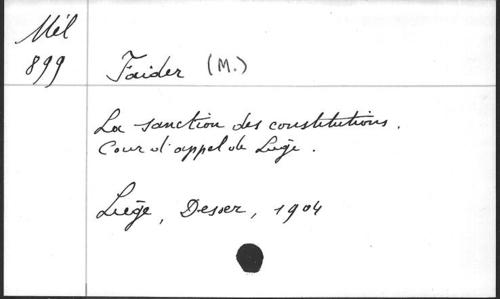 Mél
899
Faider (M.)
La sanction des constitutions.
Cour d'appel de Liège.
Liège, Desoer, 1904